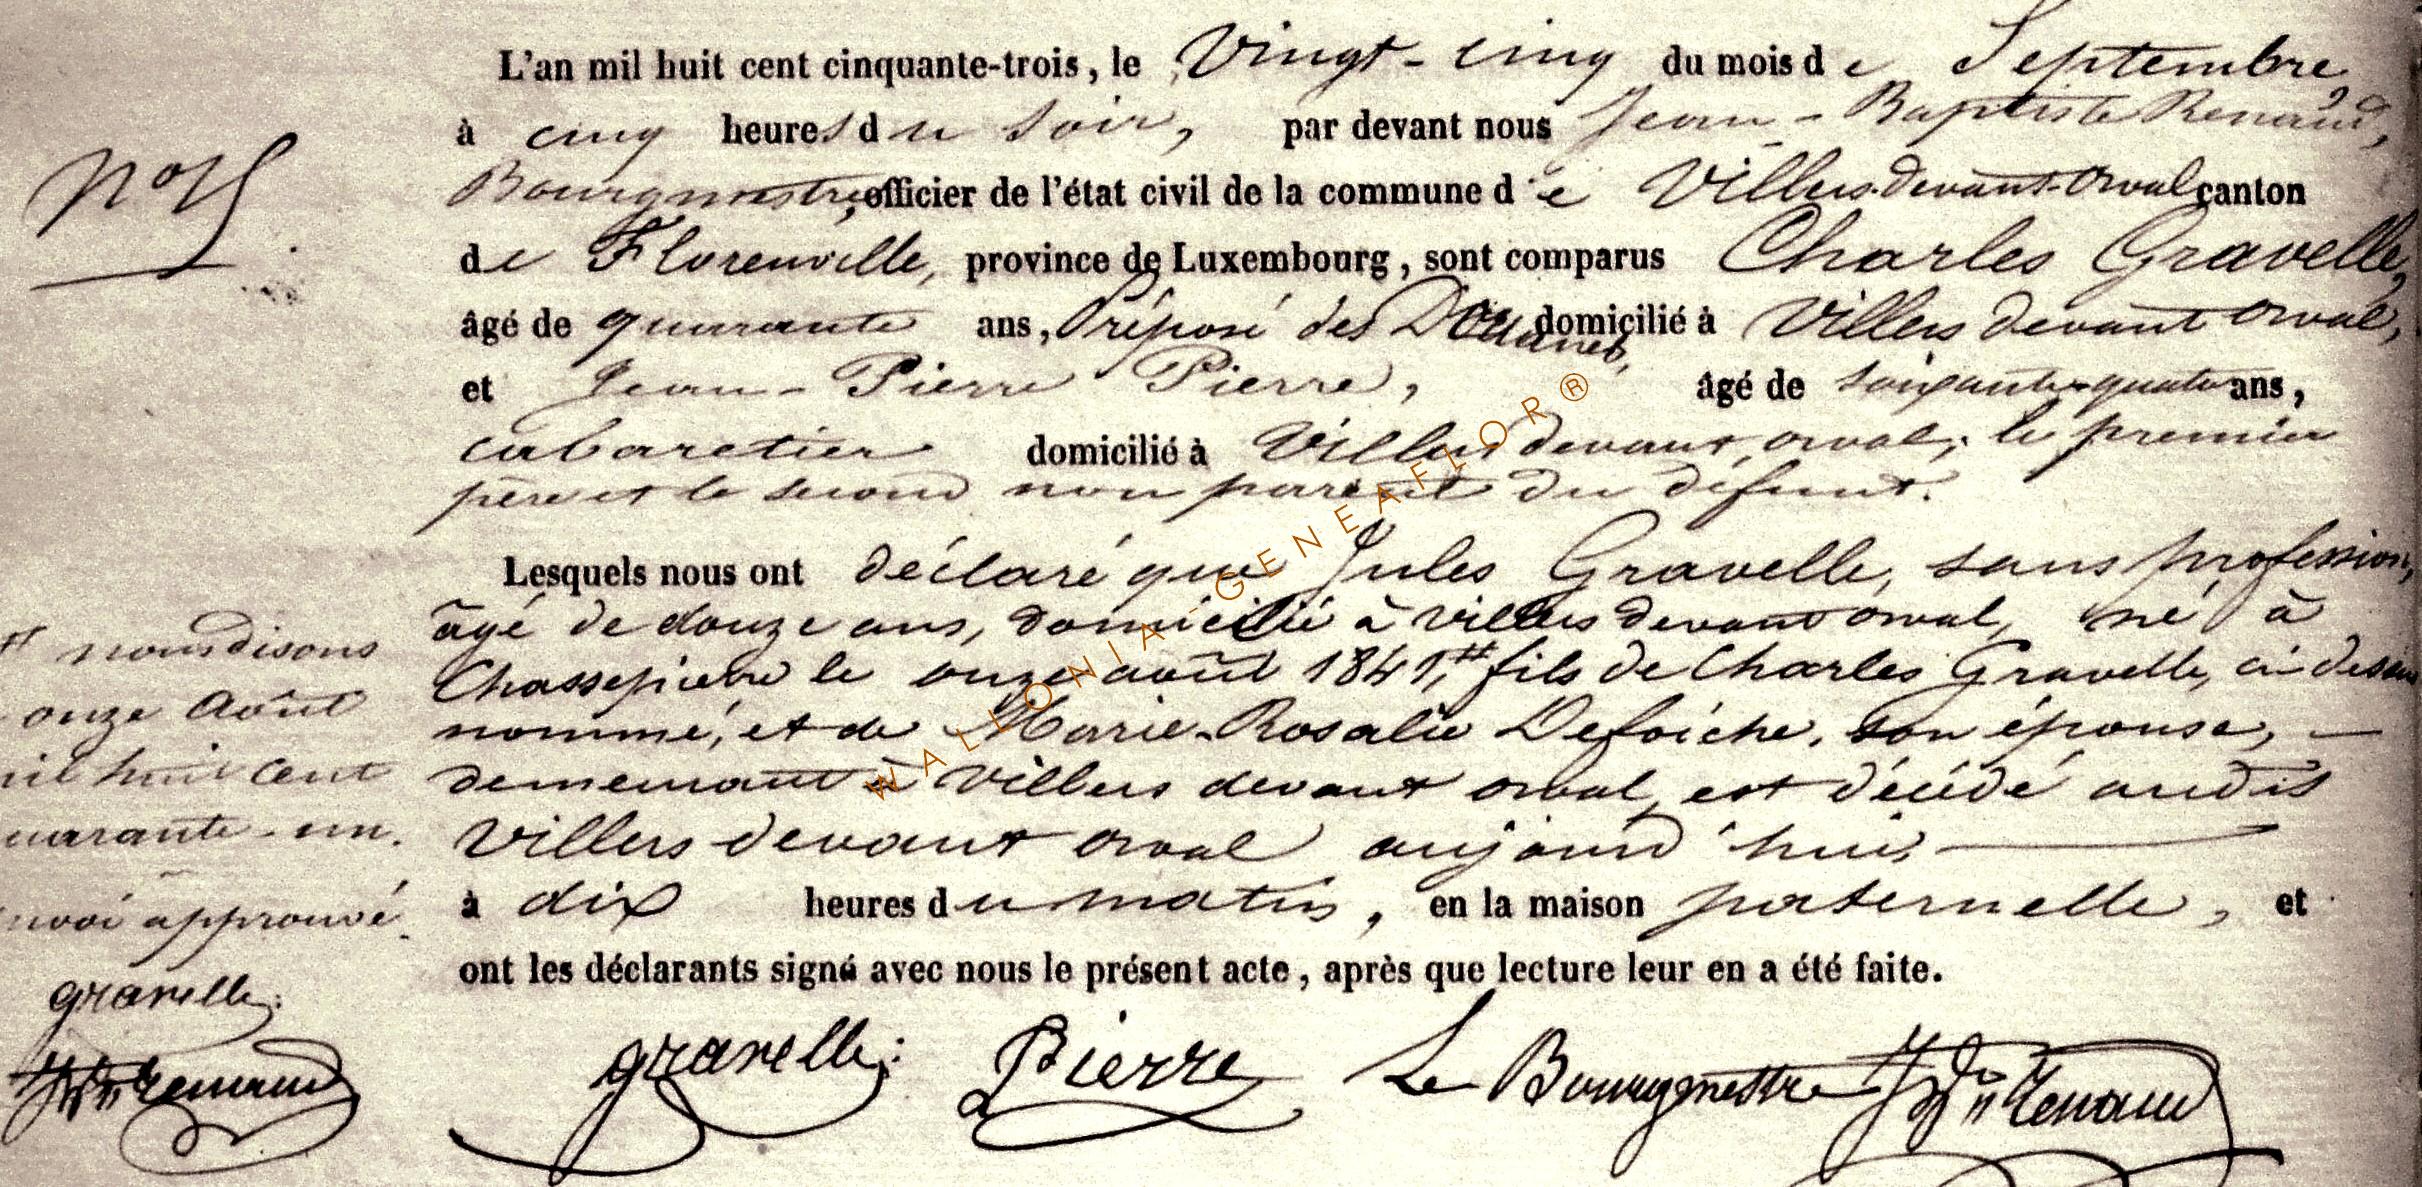 L'an mil huit cent cinquante-trois, le Vingt-cinq du mois de Septembre
à cinq heures du soir, par devant nous Jean-Baptiste Renaud,
Bourgmestre, officier de l'état civil de la commune de Villers-devant-Orval canton
de Florenville, province de Luxembourg, sont comparus Charles Gravelle,
âgé de quarante ans, Préposé des Douanes, domicilié à Villers devant orval,
et Jean-Pierre Pierre, âgé de soixante-quatre ans,
cabaretier domicilié à Villers devant orval; le premier
père et le second non parent du défunt.
Lesquels nous ont déclaré que Jules Gravelle, sans profession,
âgé de douze ans, domicilié à villers devant orval, né à
Chassepierre le onze août 1841,# fils de Charles Gravelle, ci-dessus
nommé, et de Marie-Rosalie Defoiche, son épouse, —
demeurant à Villers devant orval, est décédé audit
Villers devant orval aujourd'hui —
à dix heures du matin, en la maison paternelle, et
ont les déclarants signé avec nous le présent acte, après que lecture leur en a été faite.
gravelle Pierre Le Bourgmestre JBte Renaud
# nous disons
onze Août
mil huit cent
quarante-un.
renvoi approuvé.
gravelle
JBte Renaud
WALLONIA-GENEAFLOR®